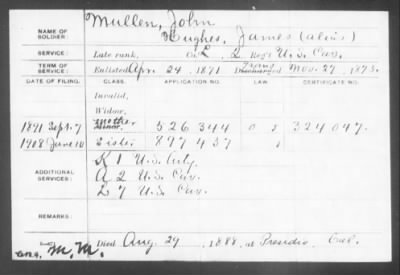 Mullen, John
NAME OF SOLDIER: Hughes, James (alias)
SERVICE: Late rank, Co. L, 2 Reg't U.S. Cav.
TERM OF SERVICE: Enlisted Apr. 24, 1871 Discharged Nov. 27, 1875.
DATE OF FILING. CLASS. APPLICATION NO. LAW. CERTIFICATE NO.
Invalid,
Widow,
1891 Sept. 7 Mother Minor, 526344 324047.
1908 June Sister 897437
ADDITIONAL SERVICES: K 1 U.S. Arty.
A 2 U.S. Cav.
L 7 U.S. Cav.
REMARKS:
Died Aug. 29, 1888, at Presidio, Cal.
M. M.